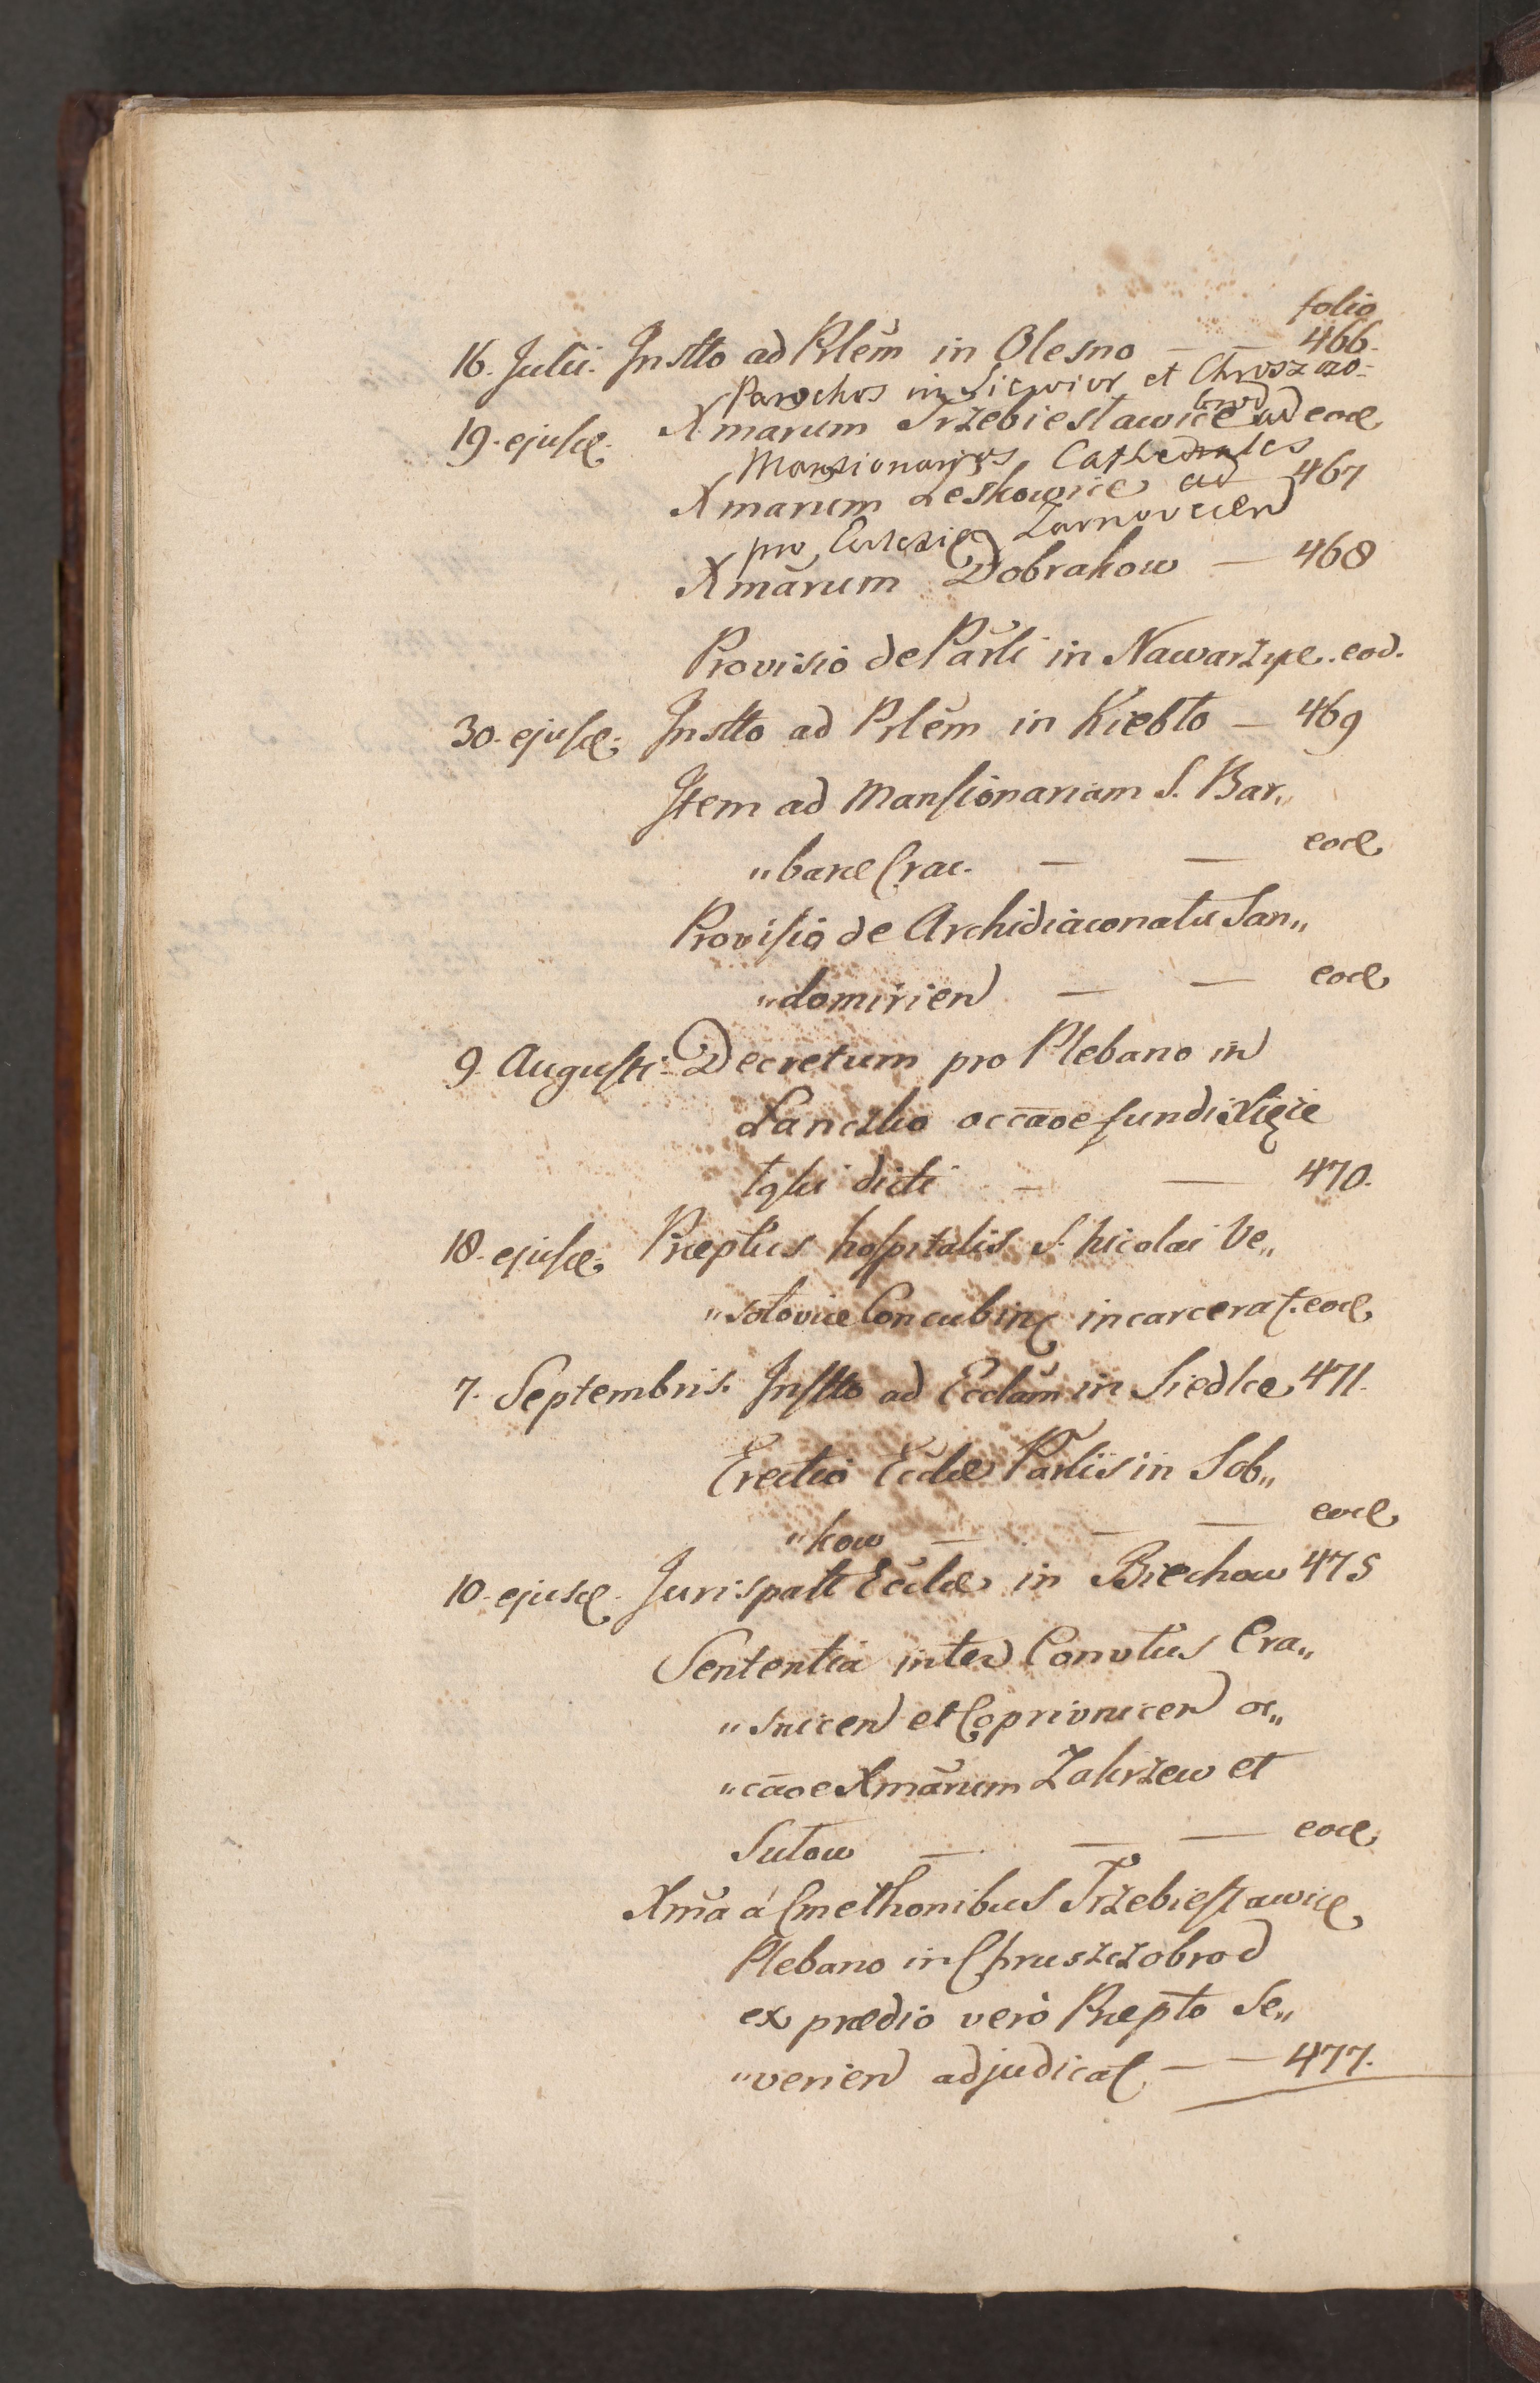 folio
16. Julii. Instto ad Plem in Olesno — — 466.
Parochos in Siewior et Chroszczo-
brod
19. ejusd. Xmarum Trzebiesławice ad eod
Mansionarios Cathedrales
Xmarum Leskowice ad 467
pro Eclesia Zarnovecien
Xmarum Dobrakow — 468
Provisio de Parli in Nawarzyce. eod.
30. ejusd. Instto ad Plem in Kiebło — 469
Item ad Mansionariam S. Bar„
„baræ Crac. — — eod
Provisio de Archidiaconatu San„
„domirien — — eod
9. Augusti. Decretum pro Plebano in
Lanczko occaoe fundi Xięże
łąki dicti — — 470.
18. ejusd. Præptus hospitalis S. Nicolai Ve„
„sołoviæ Concubinæ incarcerat. eod
7. Septembris. Instto ad Ecclam in Siedlce 471.
Erectio Eccliæ Parlis in Sob„
„kow — — — eod
10. ejusd. Jurispatt Eccliæ in Biechow 475
Sententia inter Convtus Cra„
„snicen et Coprivnicen oc„
„caoe Xmarum Zakrzew et
Sułow — — — eod
Xma á Cmethonibus Trzebiesławice
Plebano in Chruszczobrod
ex prædio verò Præpto Se„
„verien adjudicat — — 477.